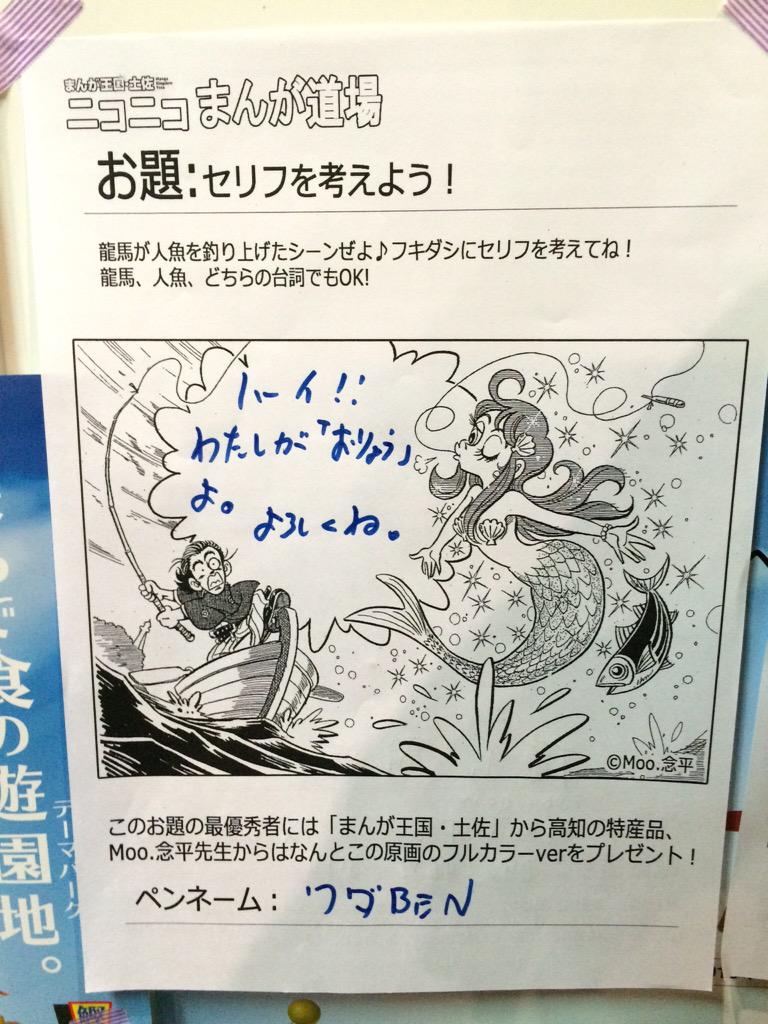 まんが王国・土佐
ニコニコまんが道場
お題:セリフを考えよう！
龍馬が人魚を釣り上げたシーンぜよ♪フキダシにセリフを考えてね！
龍馬、人魚、どちらの台詞でもOK!
ハーイ!!
わたしが「おりょう」
よ。
よろしくね。
©Moo.念平
このお題の最優秀者には「まんが王国・土佐」から高知の特産品、
Moo.念平先生からはなんとこの原画のフルカラーverをプレゼント！
ペンネーム： ワダBEN
食の遊園地。
テーマパーク